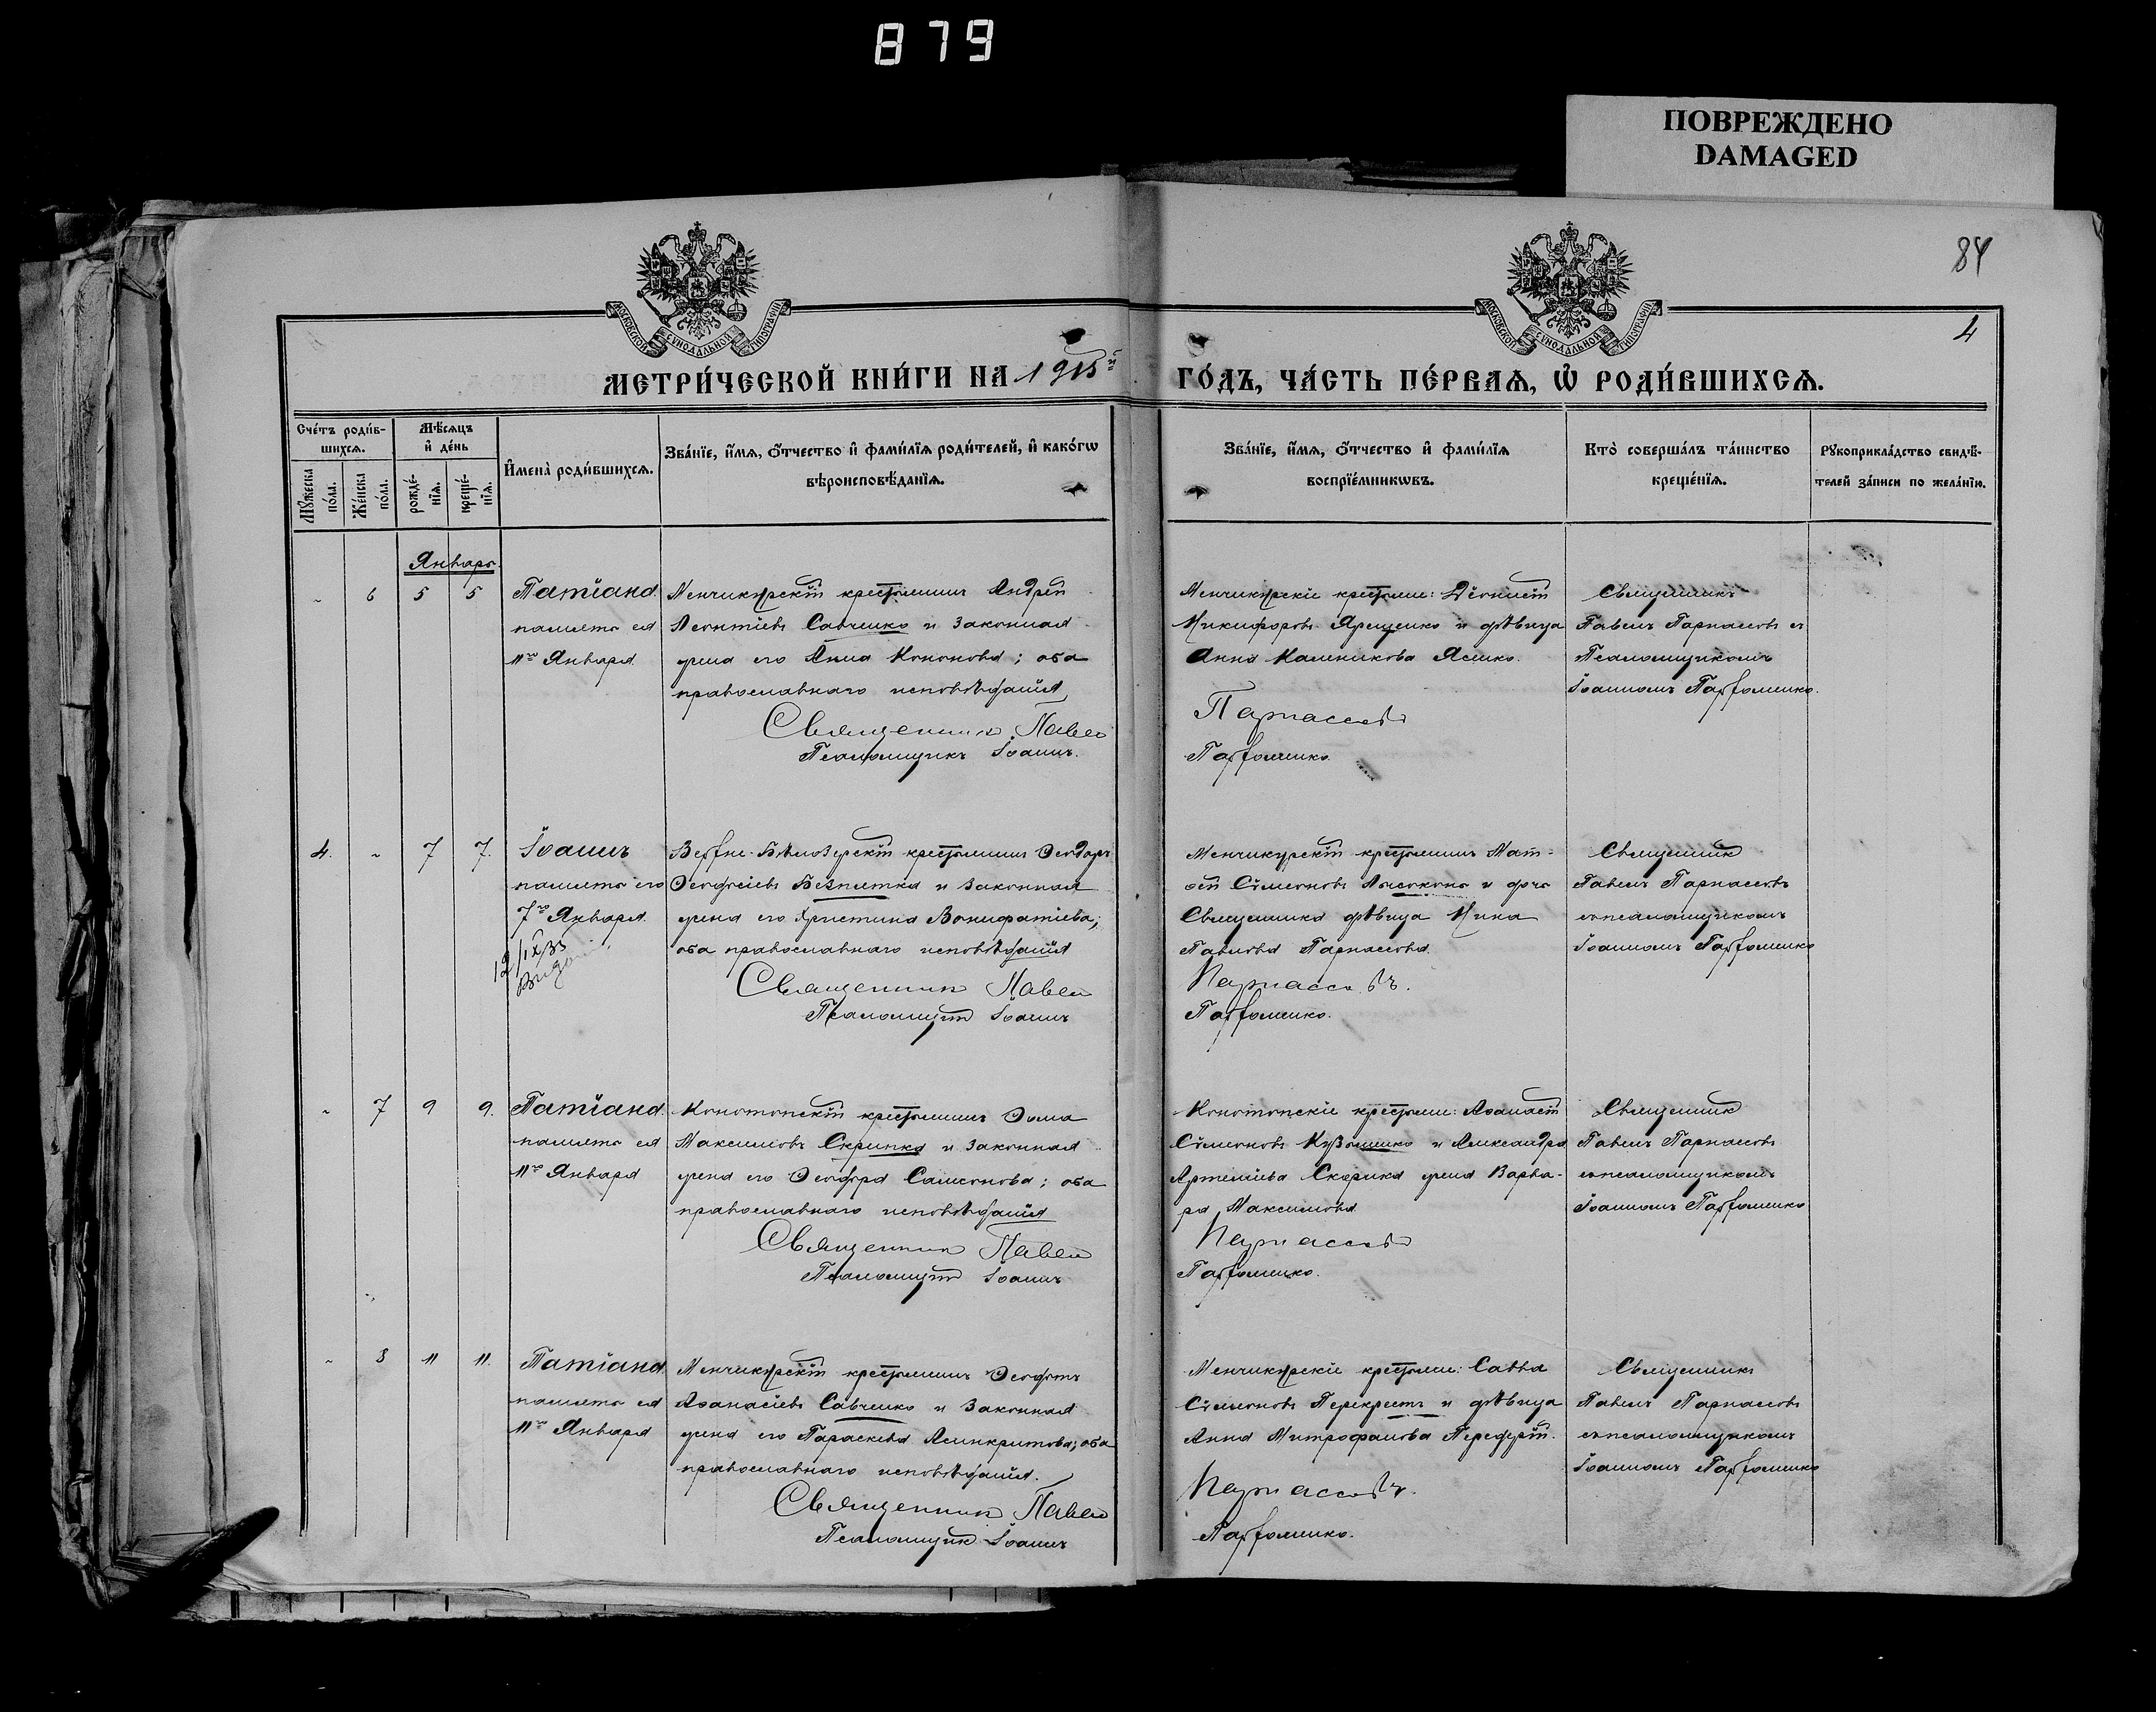 879
ПОВРЕЖДЕНО
DAMAGED
84
4
МОСКОВСКОЙ СѴНОДАЛЬНОЙ ТИПОГРАФІИ
МОСКОВСКОЙ СѴНОДАЛЬНОЙ ТИПОГРАФІИ
МЕТРИ́ЧЕСКОЙ КНИ́ГИ НА 1915й ГО́ДЪ, ЧА́СТЬ ПЕ́РВАѦ, Ѡ҆ РОДИ́ВШИХСѦ.
Сче́тъ роди́в-
шихсѧ.
Мꙋ́жеска по́ла.
Же́нска по́ла.
Мѣ́сѧцъ
и҆ де́нь
рожде́-
нїѧ.
креще́-
нїѧ.
И҆мена̀ роди́вшихсѧ.
Зва́нїе, и҆́мѧ, ѻ҆́тчество и҆ фами́лїѧ роди́телей, и҆ како́гѡ
вѣроисповѣ́данїѧ.
Зва́нїе, и҆́мѧ, ѻ҆́тчество и҆ фами́лїѧ
воспрїе́мникѡвъ.
Кто̀ соверша́лъ та́инство
креще́нїѧ.
Рꙋкоприкла́дство свидѣ́-
телей за́писи по жела́нїю.
Январь.
- 6 5 5
Татіана.
память ея
11го Января.
Менчикурскій крестьянинъ Андрей
Леонтіевъ Савченко и законная
жена его Анна Кононова; оба
православнаго исповѣданія
Священникъ Павел
Псаломщикъ Іоаннъ.
Менчикурскіе крестьяне: Діонисій
Никифоровъ Ярещенко и дѣвица
Анна Калиникова Ясько.
Парнассовъ
Парфоменко.
Священникъ
Павелъ Парнассовъ съ
псаломщикомъ
Іоанномъ Парфоменко.
4. - 7 7.
Іоаннъ
память его
7го Января.
12/IX 33
Верхне-Бѣлозерскій крестьянинъ Ѳеодоръ
Ѳеодосіевъ Безпятка и законная
жена его Христина Вонифатіева;
оба православнаго исповѣданія
Священник Павел
Псаломщик Іоаннъ
Менчикурскій крестьянинъ Мат-
ѳей Сѵмеоновъ и дочь
Священника дѣвица Нина
Павлова Парнассова.
Парнассовъ.
Парфоменко.
Священник
Павелъ Парнассовъ
съ псаломщикомъ
Іоанномъ Парфоменко
- 7 9 9.
Татіана.
память ея
11го Января
Конотопскій крестьянинъ Ѳома
Максимовъ Скрипка и законная
жена его Ѳеодора Самсонова; оба
православнаго исповѣданія
Священник Павел
Псаломщик Іоаннъ
Конотопскіе крестьяне: Аѳанасій
Сѵмеоновъ Кузьменко и Александра
Артеміева Скорика жена Варва-
ра Максимова
Парнассовъ
Парфоменко.
Священник
Павелъ Парнассовъ
съ псаломщикомъ
Іоанномъ Парфоменко
- 8 11 11.
Татіана.
память ея
11го Января
Менчикурскій крестьянинъ Ѳеодотъ
Аѳанасіевъ Савченко и законная
жена его Параскева Асинкритова; оба
православнаго исповѣданія.
Священник Павел
Псаломщик Іоаннъ
Менчикурскіе крестьяне: Савва
Сѵмеоновъ Перекрестъ и дѣвица
Анна Митрофанова Передерій.
Парнассовъ.
Парфоменко.
Священникъ
Павелъ Парнассовъ
съ псаломщикомъ
Іоанномъ Парфоменко